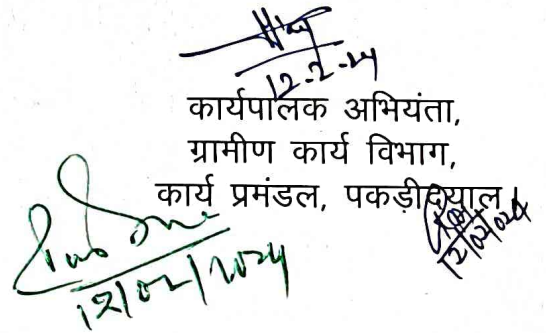 12-2-24
कार्यपालक अभियंता,
ग्रामीण कार्य विभाग,
कार्य प्रमंडल, पकड़ीदयाल।
12/02/2024
12/02/2024